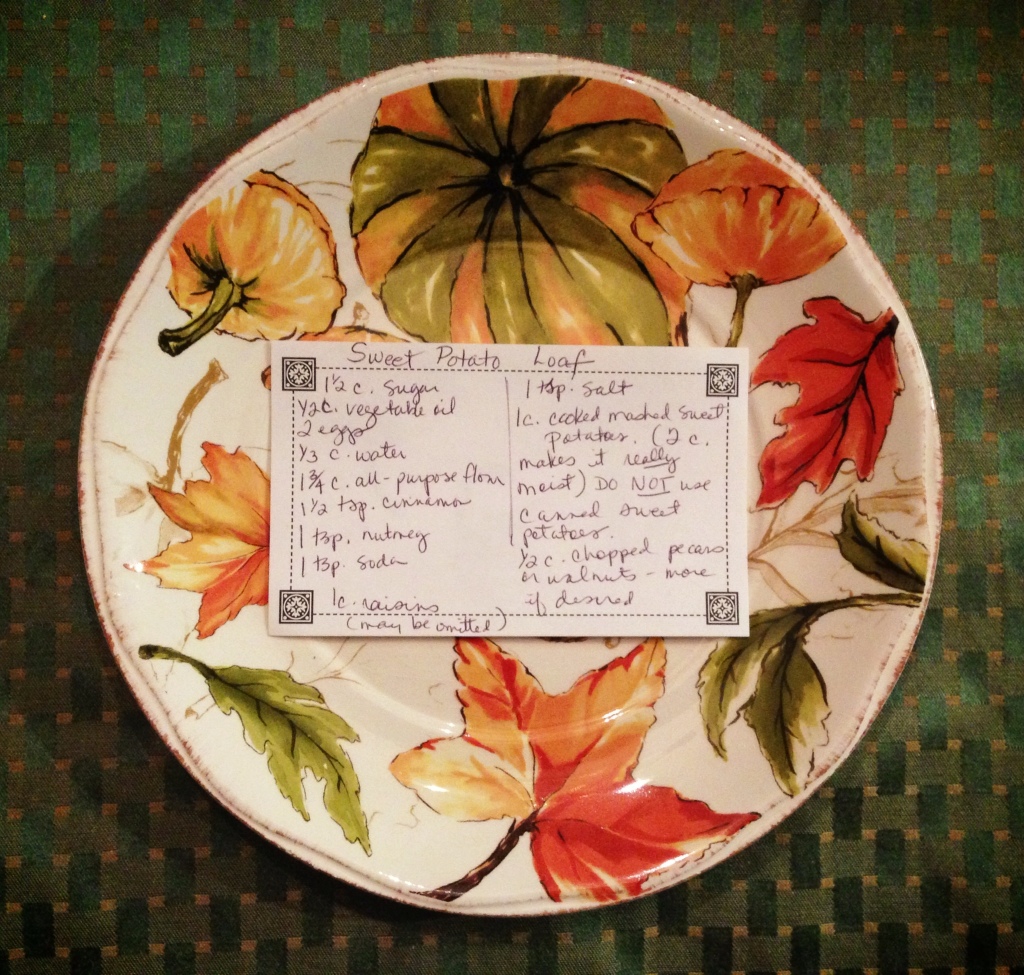 Sweet Potato Loaf
1 1/2 c. sugar
1/2 c. vegetable oil
2 eggs
1/3 c. water
1 3/4 c. all-purpose flour
1 1/2 tsp. cinnamon
1 tsp. nutmeg
1 tsp. soda
1c. raisins
(may be omitted)
1 tsp. salt
1c. cooked mashed sweet
potatoes. (2 c.
makes it really
moist) DO NOT use
canned sweet
potatoes.
1/2 c. chopped pecans
or walnuts - more
if desired